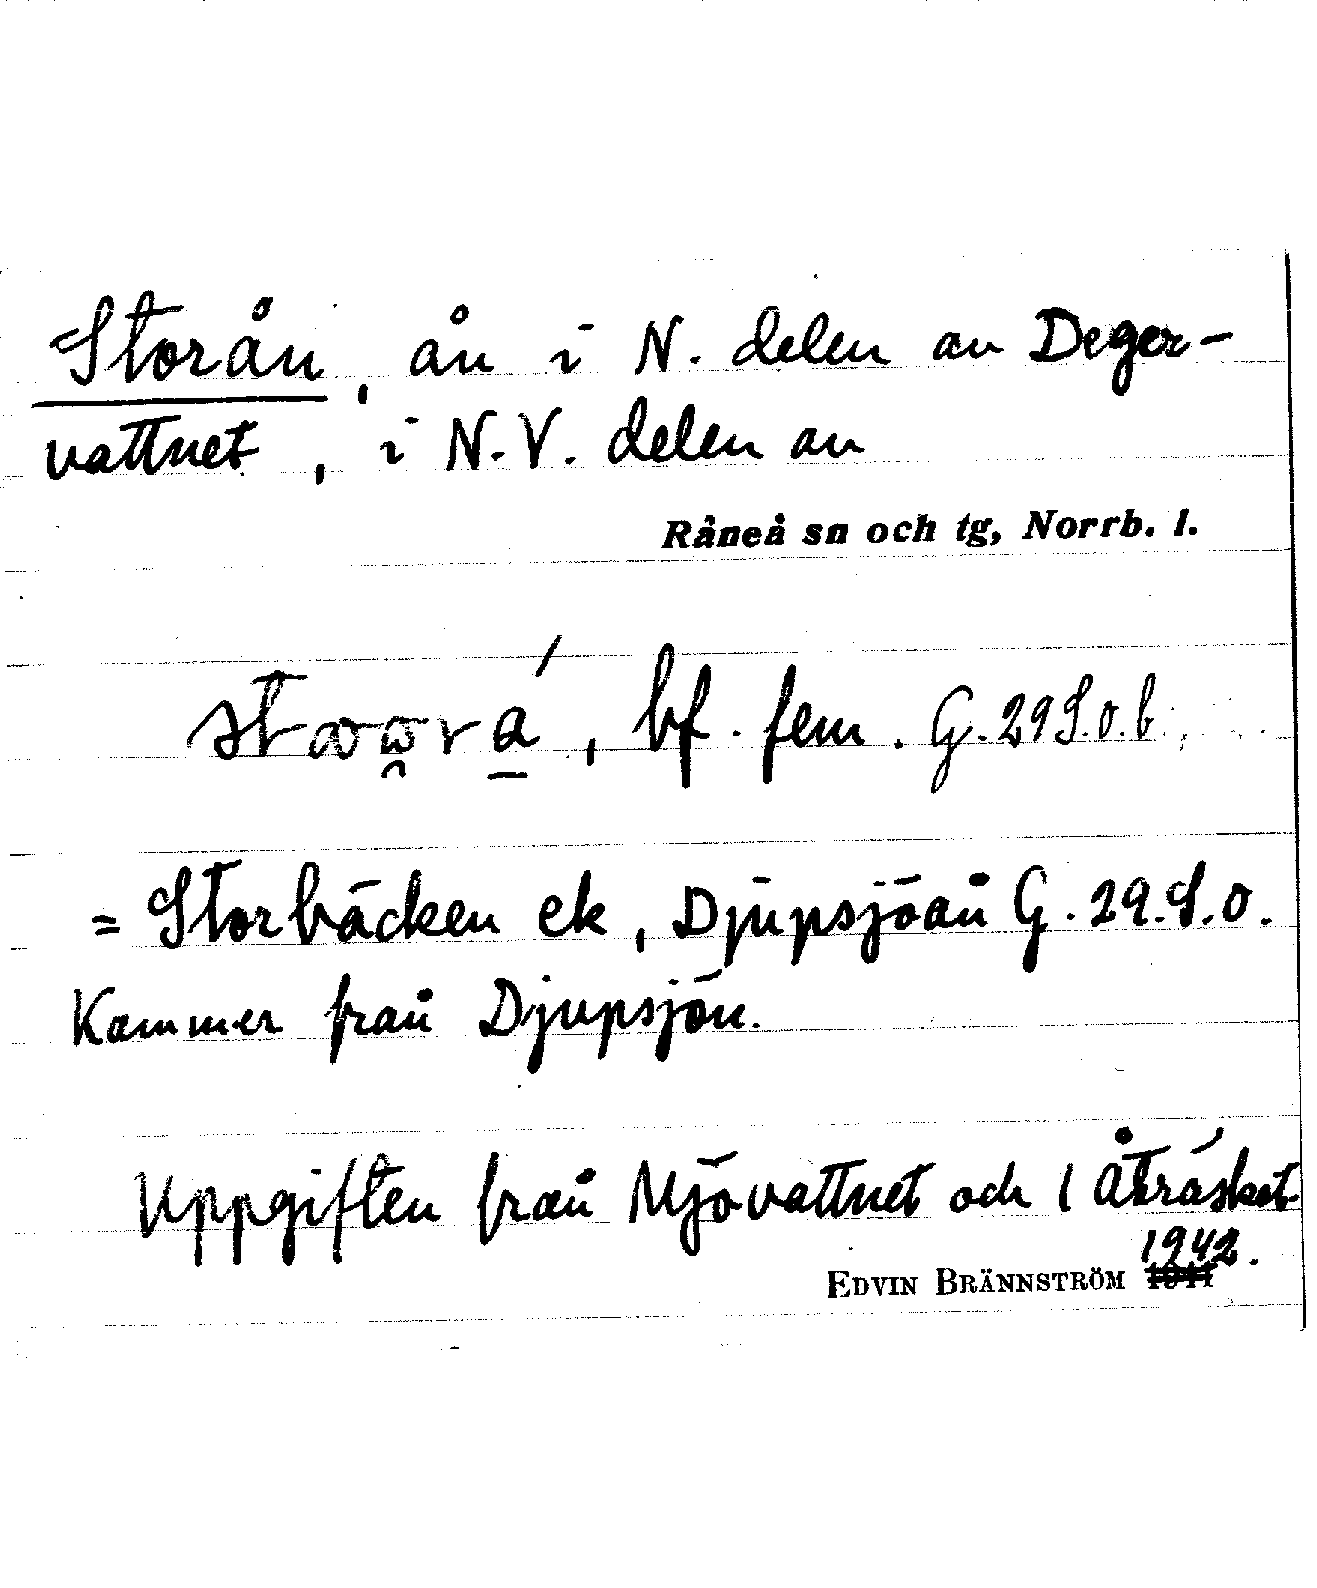 Storån, ån i N. delen av Deger-
vattnet, i N.V. delen av
Råneå sn och tg, Norrb. l.
bf. fem. G. 29 S.o.b.
= Storbäcken ek, Djupsjöån G. 29.S.o.
Kommer från Djupsjön.
Uppgiften från Mjövattnet och i Åträsket
1942.
EDVIN BRÄNNSTRÖM 1941